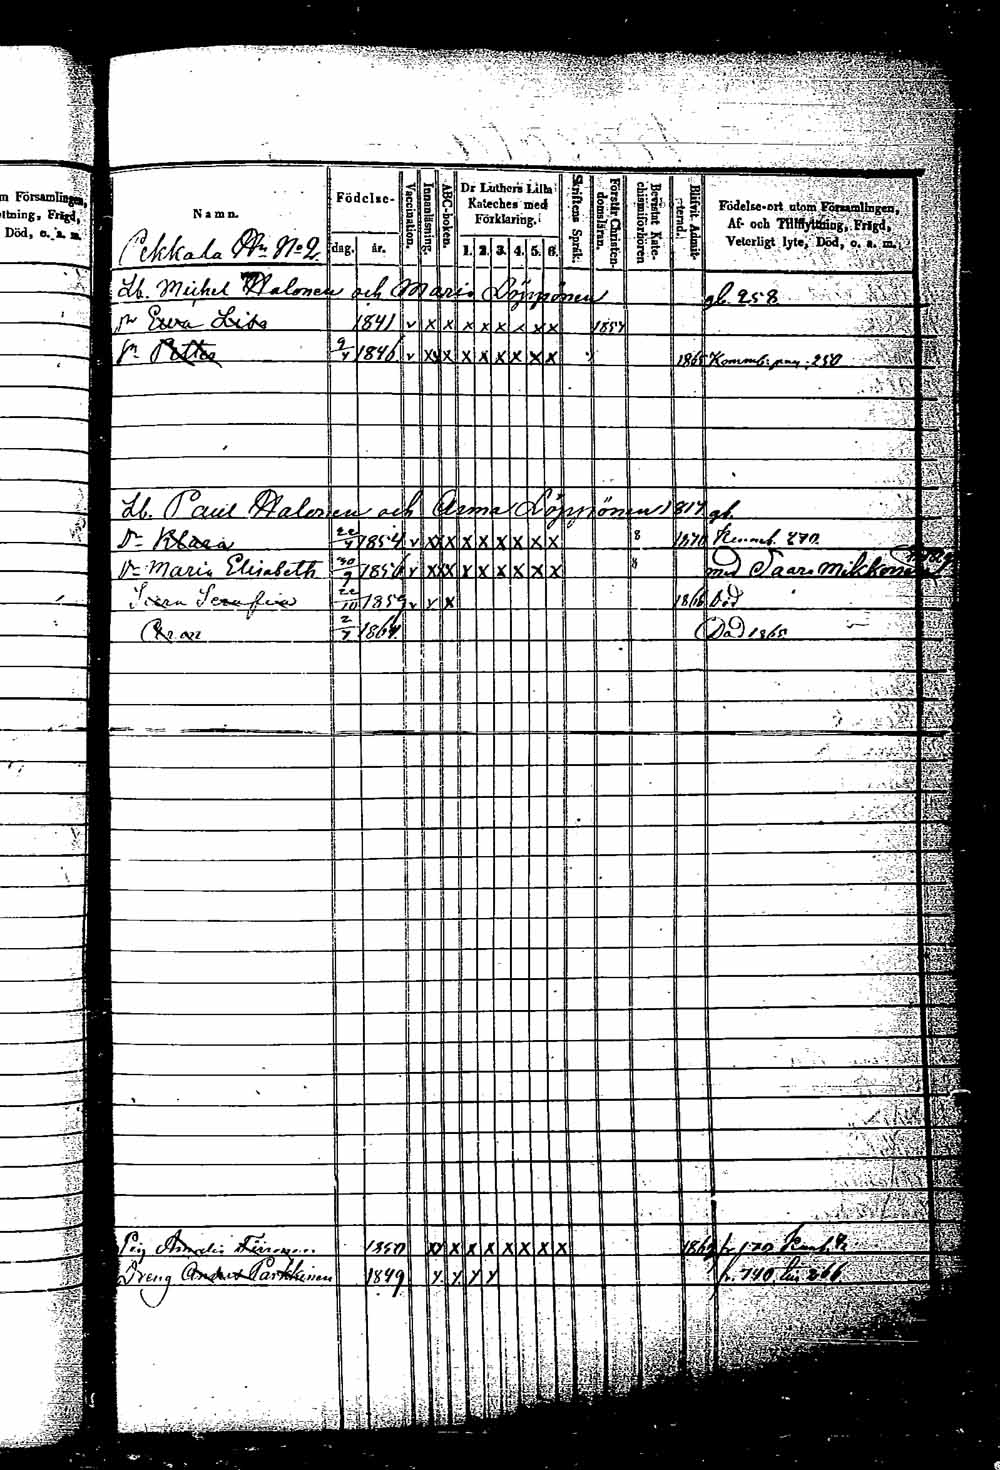 m Församlingen,
ttning, Frägd,
Död, o. a. m.
Namn.
Födelse-
dag. år.
Vaccination.
Innanläsning.
ABC-boken.
Dr Luthers Lilla
Kateches med
Förklaring.
1. 2. 3. 4. 5. 6.
Skriftens Språk.
Förstår Christen-
domsläran.
Bevistat Kate-
chismiförhören
Blifvit Admit-
terad.
Födelse-ort utom Församlingen,
Af- och Tillflyttning, Frägd,
Veterligt lyte, Död, o. a. m.
Pekkala No 2.
Lb. Michel Malonen och Maria Löppönen gb. 258
Dr Ewa Lisa 1841 v x x x x x x x x 1857
Sn Petter 9/4 1846 v x x x x x x x x 1865 250
Lb. Paul Malonen och Anna Löppönen 1817 gb.
Dr Klara 22/4 1854 v x x x x x x x x 8 1870 270
Dr Maria Elisabeth 30/9 1856 v x x x x x x x x 8 med Taav. Mikkonen
Serafia 22/10 1859 v x x 1866 Död
2/7 1864. Död 1865
Pig Amalia 1850 x x x x x x x x fr. 170
Dreng Anders Parkkinen 1849 x x x x fr. 140 266